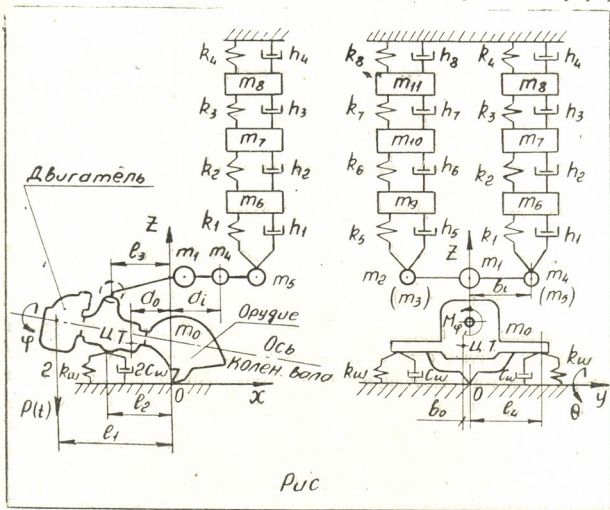 k₄ h₄
m₈
k₃ h₃
m₇
k₂ h₂
m₆
k₁ h₁
Двигатель
Z
l₃
m₁ m₄ m₅
d₀ dᵢ
m₀
Орудие
Ц.Т
Ось
Колен. вала
φ
2 kω 2Cω
P(t)
l₂
l₁
0 x
k₈ h₈ k₄ h₄
m₁₁ m₈
k₇ h₇ k₃ h₃
m₁₀ m₇
k₆ h₆ k₂ h₂
m₉ m₆
k₅ h₅ k₁ h₁
Z
m₂ m₁ m₄
(m₃) bᵢ (m₅)
Mφ m₀
Ц.Т
kω Cω Cω kω
0 y
b₀ l₄ θ
Рис